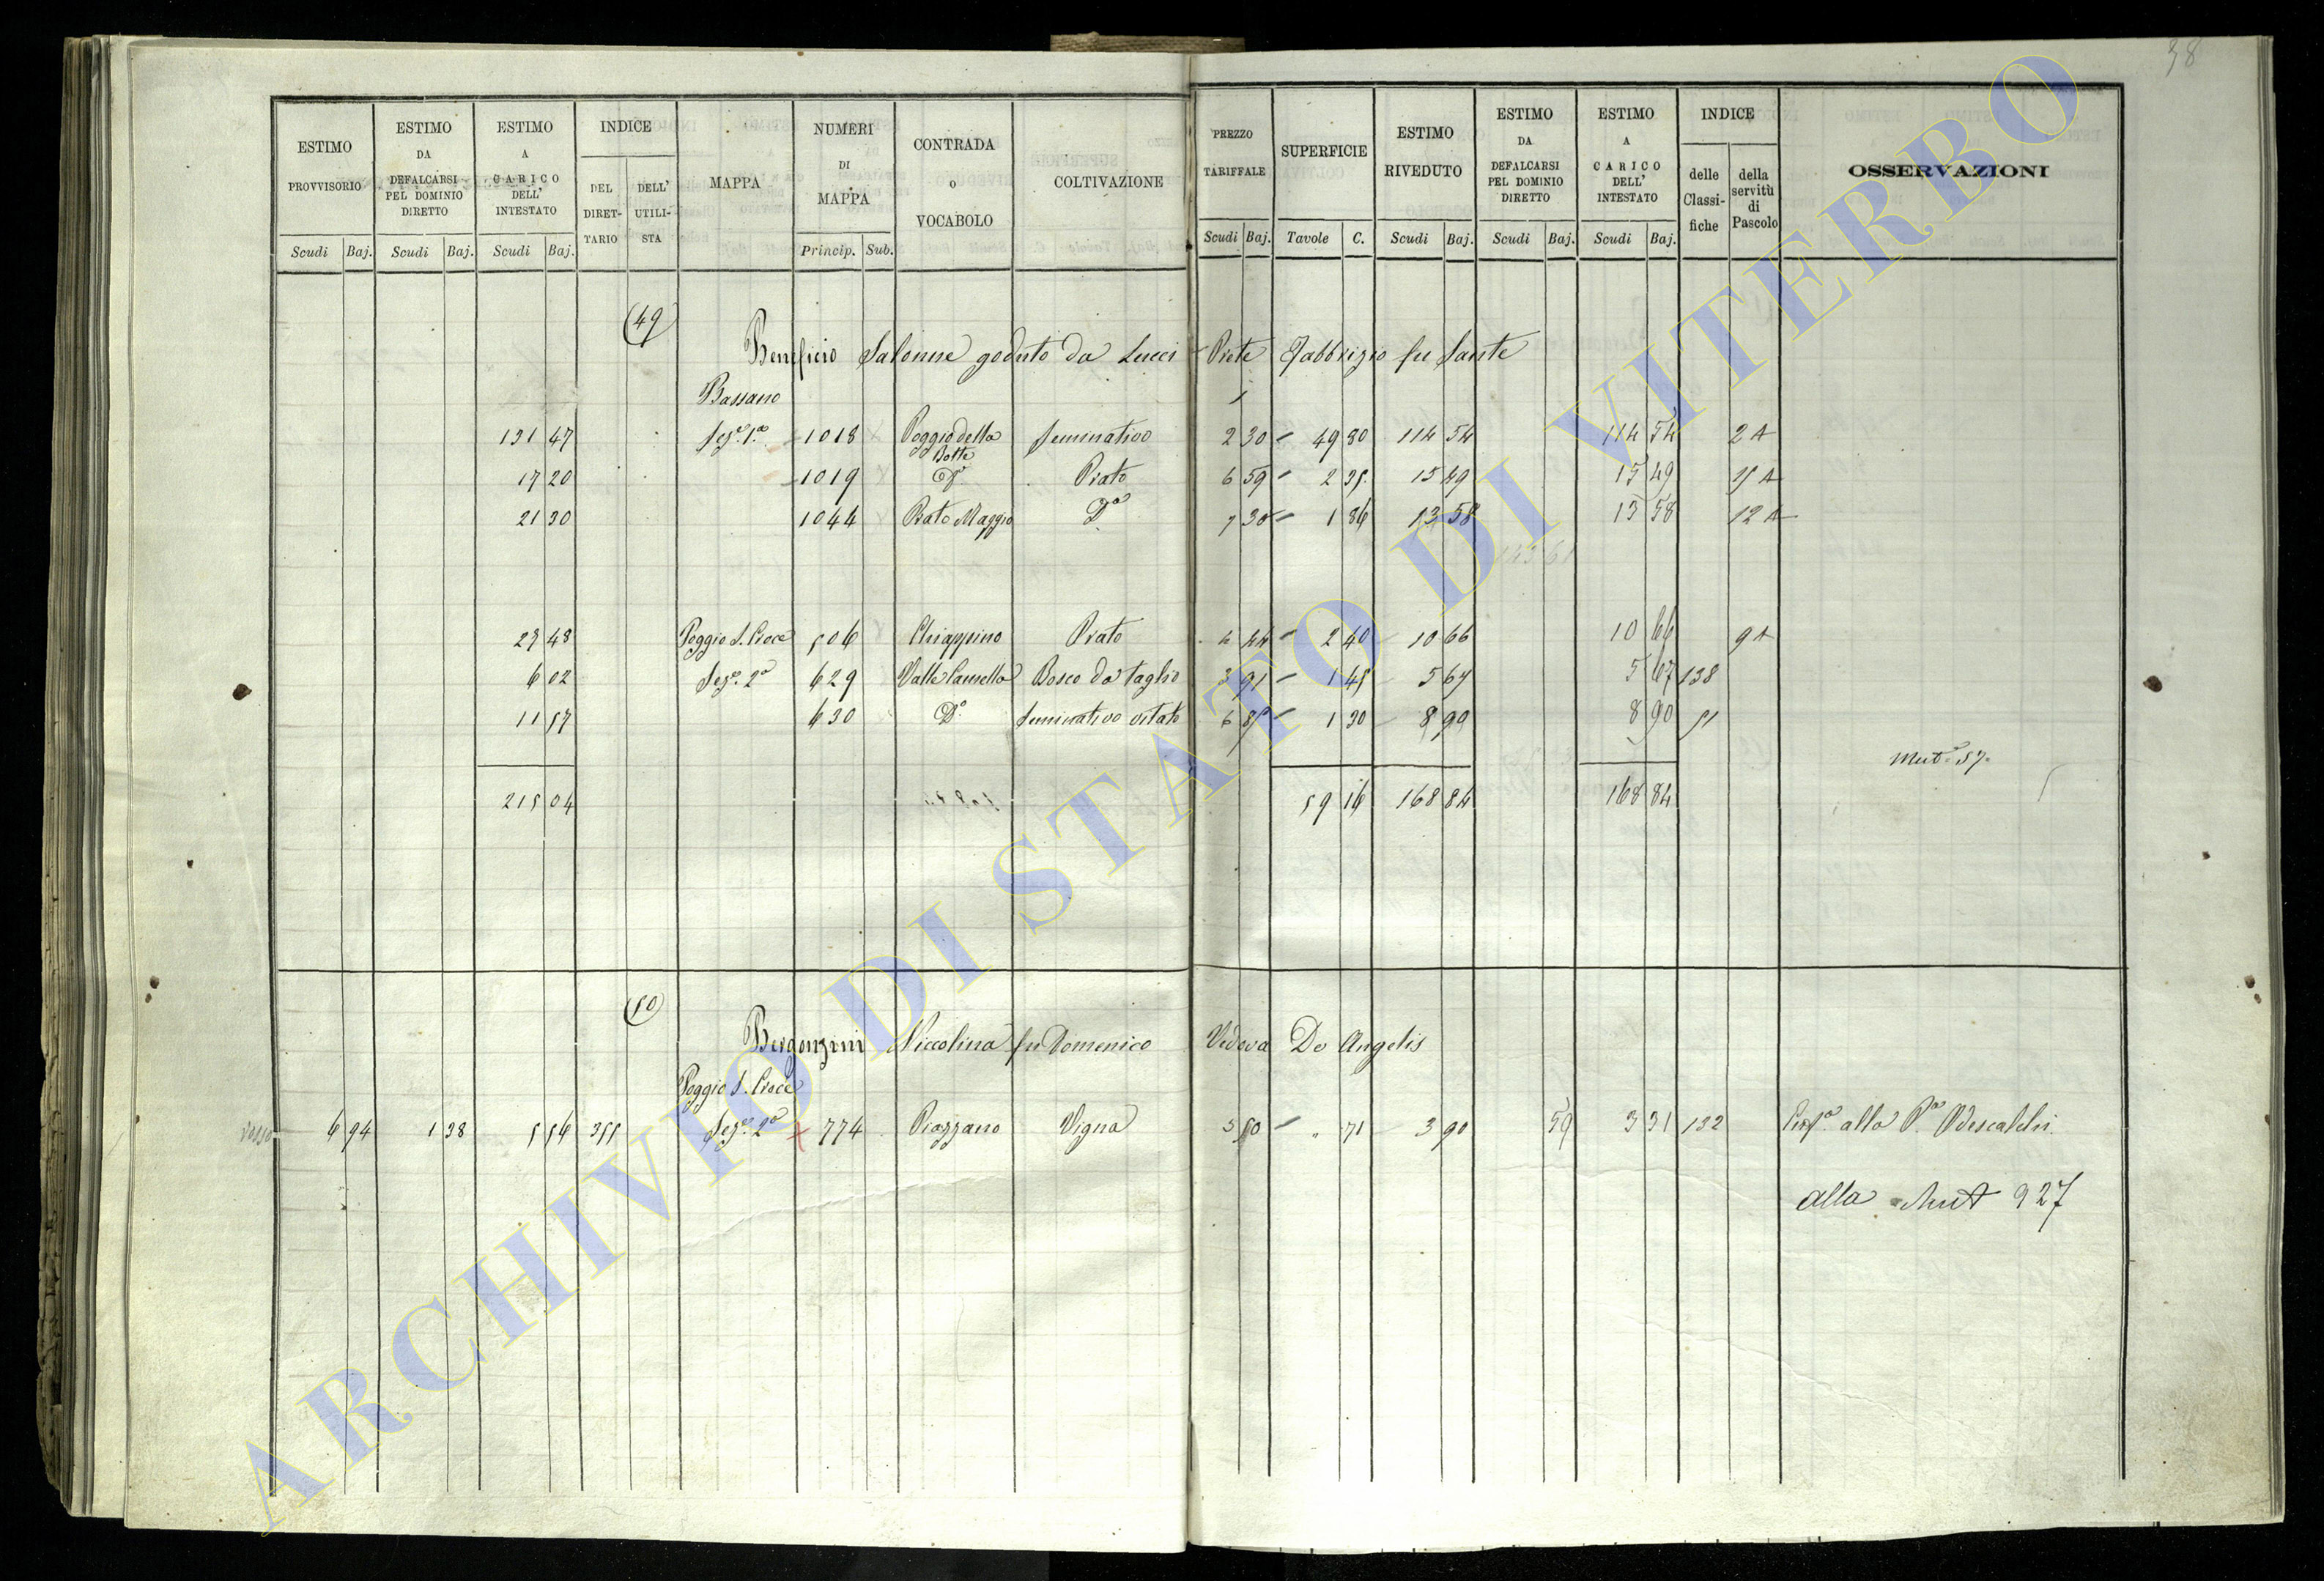 38
ESTIMO PROVVISORIO | ESTIMO DA DEFALCARSI PEL DOMINIO DIRETTO | ESTIMO A CARICO DELL' INTESTATO | INDICE DEL DIRETTARIO | DELL' UTILISTA | MAPPA | NUMERI DI MAPPA | CONTRADA O VOCABOLO | COLTIVAZIONE | PREZZO TARIFFALE | SUPERFICIE | ESTIMO RIVEDUTO | ESTIMO DA DEFALCARSI PEL DOMINIO DIRETTO | ESTIMO A CARICO DELL' INTESTATO | INDICE delle Classifiche | della servitù di Pascolo | OSSERVAZIONI
Scudi Baj. Scudi Baj. Scudi Baj. Princip. Sub. Scudi Baj. Tavole C. Scudi Baj. Scudi Baj. Scudi Baj.
(49)
Beneficio Salonne goduto da Lucci Prete Fabbrizio fu Sante
Bassano
131 47 Sez.e 1.a 1018 Poggio della Botte Seminativo 2 30 49 80 114 54 114 54 2 A
17 20 1019 D.o Prato 6 59 2 35 15 49 15 49 A
21 30 1044 Prato Maggio D.o 7 30 1 86 13 58 13 58 12 A
143 61
48 Poggio S. Croce 506 Chiappino Prato 4 44 2 40 10 66 10 66 9 A
6 02 Sez.e 2.a 629 Valle Bosco da taglio 3 91 1 45 5 67 5 67 138
11 57 630 D.o Seminativo vitato 6 85 1 30 8 90 8 90 51
Mut.e 57
215 04 59 16 168 84 168 84
(50)
Bergonzini Niccolina fu Domenico Vedova De Angelis
Poggio S. Croce
6 94 1 38 5 56 355 Sez.e 2.a 774 Piazzano Vigna 5 50 " 71 3 90 59 3 31 132 alla P.a Odescalchi
alla Mut 927
ARCHIVIO DI STATO DI VITERBO